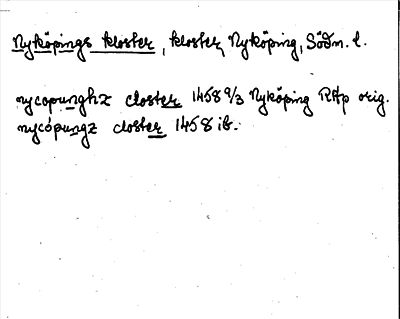 Nyköpings kloster, kloster, Nyköping, Södm. l.
nycopunghz closter 1458 9/3 Nyköping RAp orig.
nycöpungz closter 1458 ib.